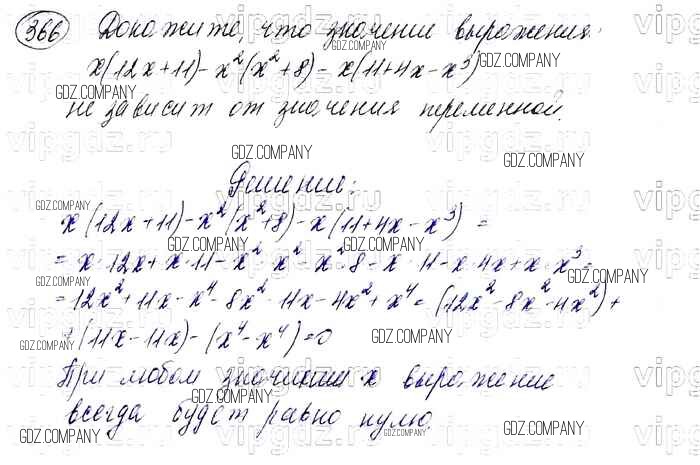 366 Докажите, что значение выражения:
x(12x+11)-x²(x²+8)-x(11+4x-x³)
не зависит от значения переменной.
Решение:
x(12x+11)-x²(x²+8)-x(11+4x-x³)=
=x·12x+x·11-x²·x²-x²·8-x·11-x·4x+x·x³=
=12x²+11x-x⁴-8x²-11x-4x²+x⁴=(12x²-8x²-4x²)+
+(11x-11x)-(x⁴-x⁴)=0
При любом значении x выражение
всегда будет равно нулю.
GDZ.COMPANY
vipgdz.ru